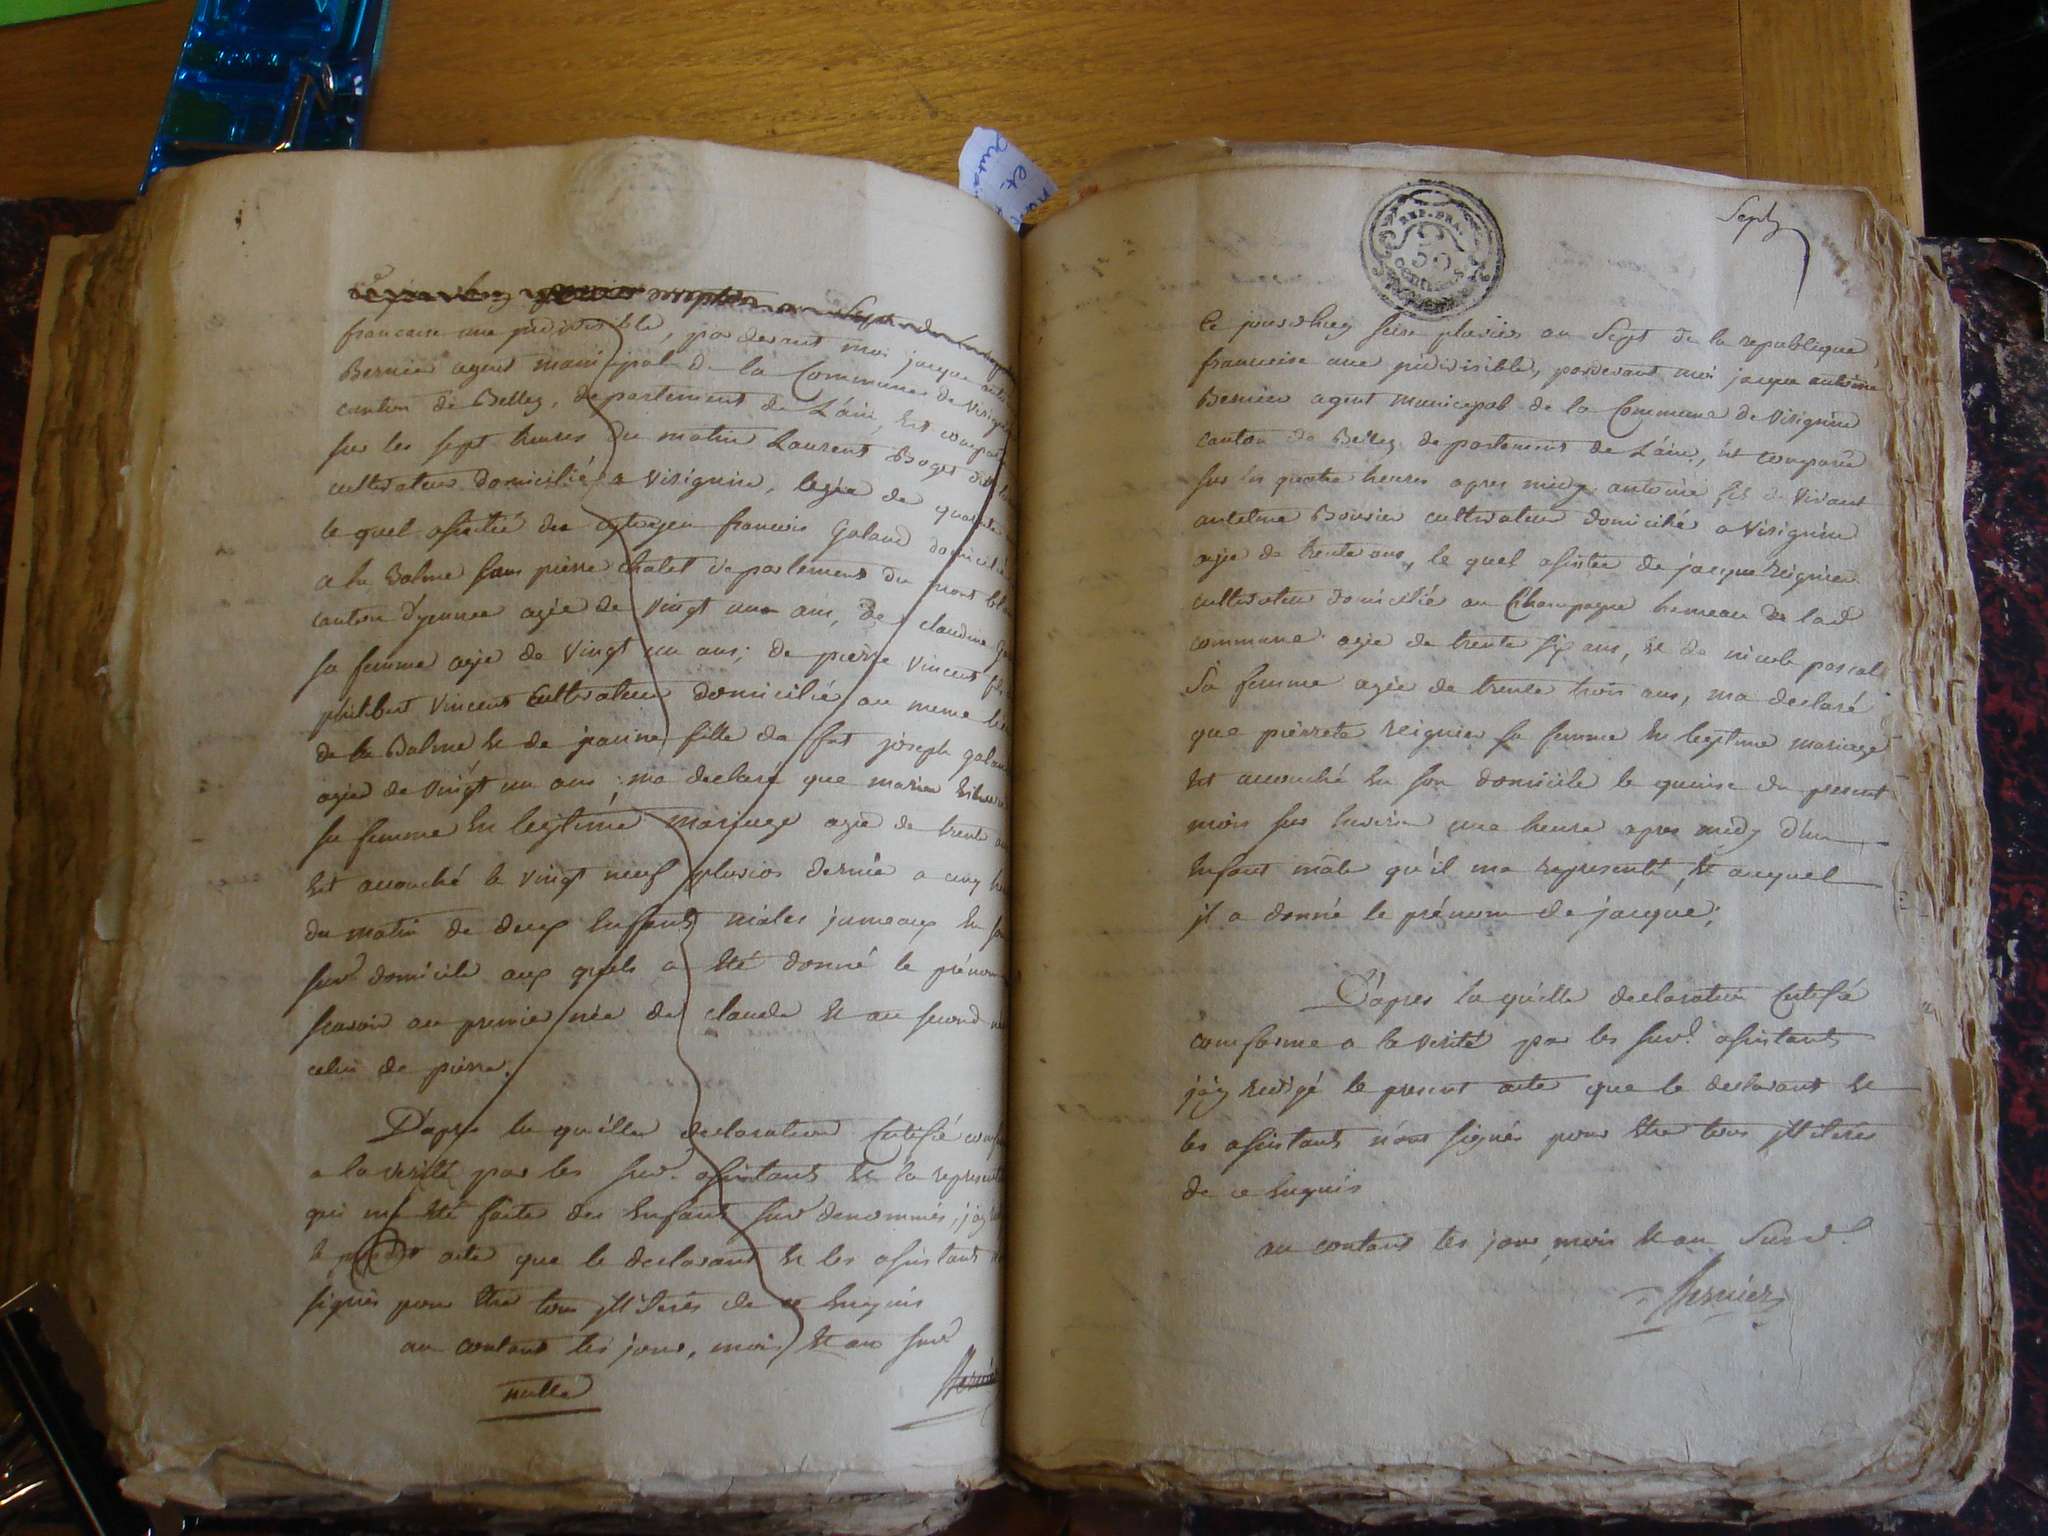 francaise une jndivisible, pardevant moi jacque
Bernier agent municipal de la Commune de Virignin
canton de Belley, departement de L'ain, Est comparu
sur les sept heures du matin Laurent Boget
cultivateur domicilié a virignin, agée de quarante
le quel assisté du citoyen francois Galand domicilié
a la Balme sous pierre chalet departement du mont blanc
canton d'yenne agée de vingt un ans, de claudine
sa femme agée de vingt un ans; de pierre vincent fils
philibert vincent Cultivateur domicilié au meme lieu
de la Balme Et de fille de joseph galand
agée de vingt un ans, ma declaré que
sa femme En legitime mariage agée de trente
Est accouché le vingt neuf pluvios dernier a cinq
du matin de deux Enfants males jumeaux En
sud domicile aux quels a Eté donné le prénom
scavoir au premier née de claude Et au second
celui de pierre.
D'apres la quelle declaration Certifié
a la verité par les sud. assistants Et la
qui ma Eté faite des Enfants sud denommés, j'ay
le present acte que le declarant Et les assistants
signés pour Etre tous jlliterés de ce Enquis
au contant les jour, mois Et an sud
nulle
Sept
REP. FR.
CENTIMES
Ce jourdhuy seise pluvios an Sept de la republique
francoise une jndivisible, pardevant moi jacque antoine
Bernier agent municipal de la Commune de virignin
canton de Belley departement de L'ain, Est comparu
sur les quatre heures apres midy antoine fils de vivant
antelme Bovier cultivateur domicilié a virignin
agée de trente ans, le quel assistee de jacque Reignier
cultivateur domicilié au Champagne hameau de lad
commune agée de trente six ans, Et de nicole pascal
Sa femme agée de trente trois ans, ma declaré
que pierrete Reignier sa femme En legitime mariage
Est accouché En son domicile le quinse du present
mois sur Environ une heure apres midy d'un
Enfant mâle qu'il ma representé, Et auquel
jl a donné le prénom de jacque;
D'apres la quelle declaration Certifié
comforme a la verité par les sud. assistants
j'ay Redigé le present acte que le declarant Et
les assistants n'ont signés pour Etre tous jlliterés
de ce Enquis
au contant les jour mois Et an Susd.
Bernier